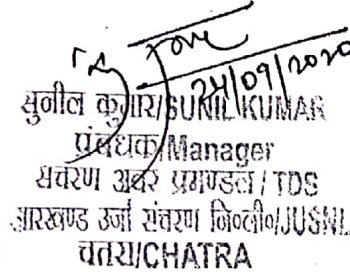 24/09/2020
सुनील कुमार/SUNIL KUMAR
प्रबंधक/Manager
संचरण अवर प्रमण्डल/TDS
झारखण्ड उर्जा संचरण नि०ली०/JUSNL
चतरा/CHATRA